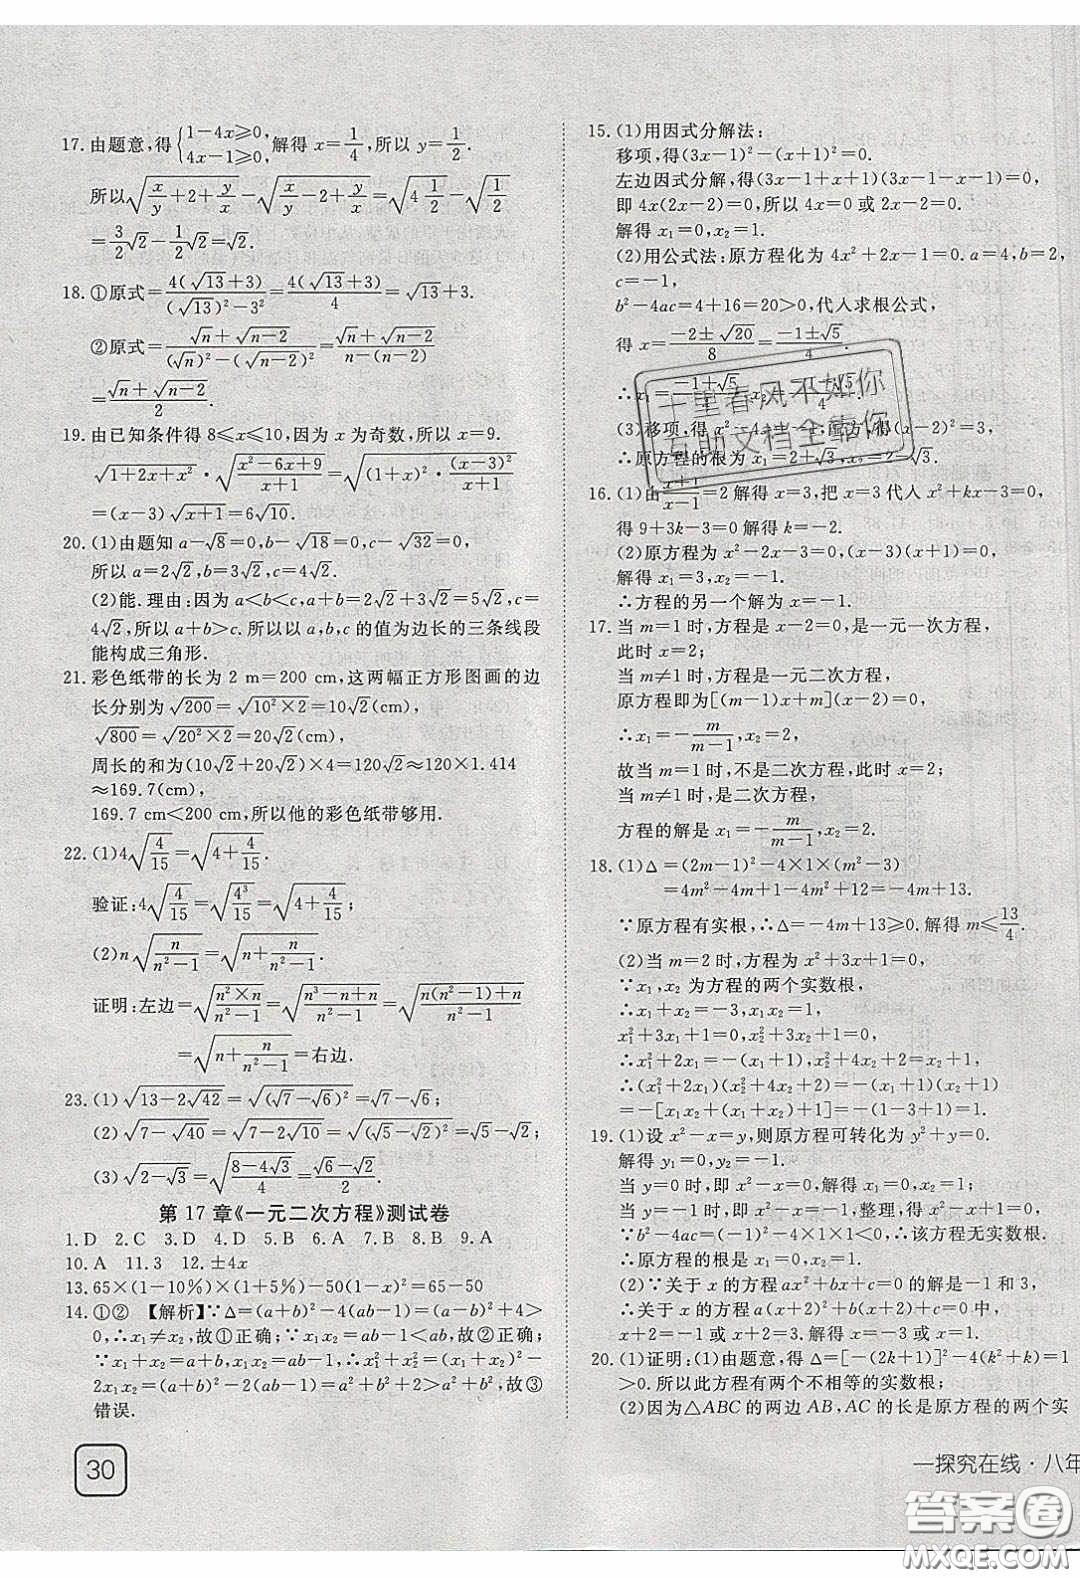 17. 由题意,得{1-4x≥0, 4x-1≥0, 解得 x=1/4,所以 y=1/2.
所以√(x/y+2+y/x)-√(x/y-2+y/x)=√(4 1/2)-√(1/2)
=3/2√2-1/2√2=√2.
18. ①原式=4(√13+3)/((√13)²-3²)=4(√13+3)/4=√13+3.
②原式=(√n+√(n-2))/((√n)²-(√(n-2))²)=(√n+√(n-2))/(n-(n-2))
=(√n+√(n-2))/2.
19. 由已知条件得 8≤x≤10,因为 x 为奇数,所以 x=9.
√(1+2x+x²)·√((x²-6x+9)/(x+1))=√((1+x)²·(x-3)²/(x+1))
=(x-3)√(x+1)=6√10.
20. (1)由题知 a-√8=0,b-√18=0,c-√32=0,
所以 a=2√2,b=3√2,c=4√2.
(2)能. 理由:因为 a<b<c,a+b=2√2+3√2=5√2,c=
4√2,所以 a+b>c. 所以以 a,b,c 的值为边长的三条线段
能构成三角形.
21. 彩色纸带的长为 2 m=200 cm,这两幅正方形图画的边
长分别为√200=√(10²×2)=10√2(cm),
√800=√(20²×2)=20√2(cm),
周长的和为(10√2+20√2)×4=120√2≈120×1.414
≈169.7(cm),
169.7 cm<200 cm,所以他的彩色纸带够用.
22. (1)4√(4/15)=√(4+4/15).
验证:4√(4/15)=√(4³/15)=√(4+4/15);
(2)n√(n/(n²-1))=√(n+n/(n²-1)).
证明:左边=√(n²×n/(n²-1))=√((n³-n+n)/(n²-1))=√((n(n²-1)+n)/(n²-1))
=√(n+n/(n²-1))=右边.
23. (1)√(13-2√42)=√((√7-√6)²)=√7-√6;
(2)√(7-√40)=√(7-2√10)=√((√5-√2)²)=√5-√2;
(3)√(2-√3)=√((8-4√3)/4)=(√6-√2)/2.
第 17 章《一元二次方程》测试卷
1. D 2. C 3. D 4. D 5. B 6. A 7. B 8. B 9. A
10. A 11. 3 12. ±4x
13. 65×(1-10%)×(1+5%)-50(1-x)²=65-50
14. ①② 【解析】∵Δ=(a+b)²-4(ab-1)=(a-b)²+4>
0,∴x₁≠x₂,故①正确;∵x₁x₂=ab-1<ab,故②正确;
∵x₁+x₂=a+b,x₁x₂=ab-1,∴x₁²+x₂²=(x₁+x₂)²-
2x₁x₂=(a+b)²-2(ab-1)=a²+b²+2>a²+b²,故③
错误.
30
15. (1)用因式分解法:
移项,得(3x-1)²-(x+1)²=0.
左边因式分解,得(3x-1+x+1)(3x-1-x-1)=0,
即 4x(2x-2)=0,所以 4x=0 或 2x-2=0.
解得 x₁=0,x₂=1.
(2)用公式法:原方程化为 4x²+2x-1=0. a=4,b=2,
c=-1.
b²-4ac=4+16=20>0,代入求根公式,
得 x=(-2±√20)/8=(-1±√5)/4.
∴x₁=(-1+√5)/4,x₂=(-1-√5)/4.
(3)移项,得 x²-4x=-1,配方,得(x-2)²=3,
∴原方程的根为 x₁=2+√3,x₂=2-√3.
16. (1)由(x+1)/(x-1)=2 解得 x=3,把 x=3 代入 x²+kx-3=0,
得 9+3k-3=0 解得 k=-2.
(2)原方程为 x²-2x-3=0,(x-3)(x+1)=0,
解得 x₁=3,x₂=-1.
∴方程的另一个解为 x=-1.
17. 当 m=1 时,方程是 x-2=0,是一元一次方程,
此时 x=2;
当 m≠1 时,方程是一元二次方程,
原方程即为[(m-1)x+m](x-2)=0,
∴x₁=-m/(m-1),x₂=2,
故当 m=1 时,不是二次方程,此时 x=2;
当 m≠1 时,是二次方程,
方程的解是 x₁=-m/(m-1),x₂=2.
18. (1)Δ=(2m-1)²-4×1×(m²-3)
=4m²-4m+1-4m²+12=-4m+13.
∵原方程有实根,∴Δ=-4m+13≥0. 解得 m≤13/4.
(2)当 m=2 时,方程为 x²+3x+1=0,
∵x₁,x₂ 为方程的两个实数根,
∴x₁+x₂=-3,x₁x₂=1,
x₁²+3x₁+1=0,x₂²+3x₂+1=0,
∴x₁²+2x₁=-(x₁+1),x₂²+4x₂+2=x₂+1,
∴(x₁²+2x₁)(x₂²+4x₂+2)=-(x₁+1)(x₂+1)
=-[x₁x₂+(x₁+x₂)+1]=-(1-3+1)=1.
19. (1)设 x²-x=y,则原方程可转化为 y²+y=0.
解得 y₁=0,y₂=-1.
当 y=0 时,即 x²-x=0,解得 x₁=0,x₂=1.
当 y=-1 时,即 x²-x=-1,整理,得 x²-x+1=0,
∵b²-4ac=(-1)²-4×1×1<0,∴该方程无实数根.
∴原方程的根是 x₁=0,x₂=1.
(2)∵关于 x 的方程 ax²+bx+c=0 的解是-1 和 3,
∴关于 x 的方程 a(x+2)²+b(x+2)+c=0 中,
x+2=-1 或 x+2=3. 解得 x=-3 或 x=1.
20. (1)证明:(1)由题意,得 Δ=[-(2k+1)]²-4(k²+k)=1
>0. 所以此方程有两个不相等的实数根;
(2)因为△ABC 的两边 AB,AC 的长是原方程的两个实
千里春风不如你
互助文档全靠你
—探究在线·八年
答案圈
MXQE.COM